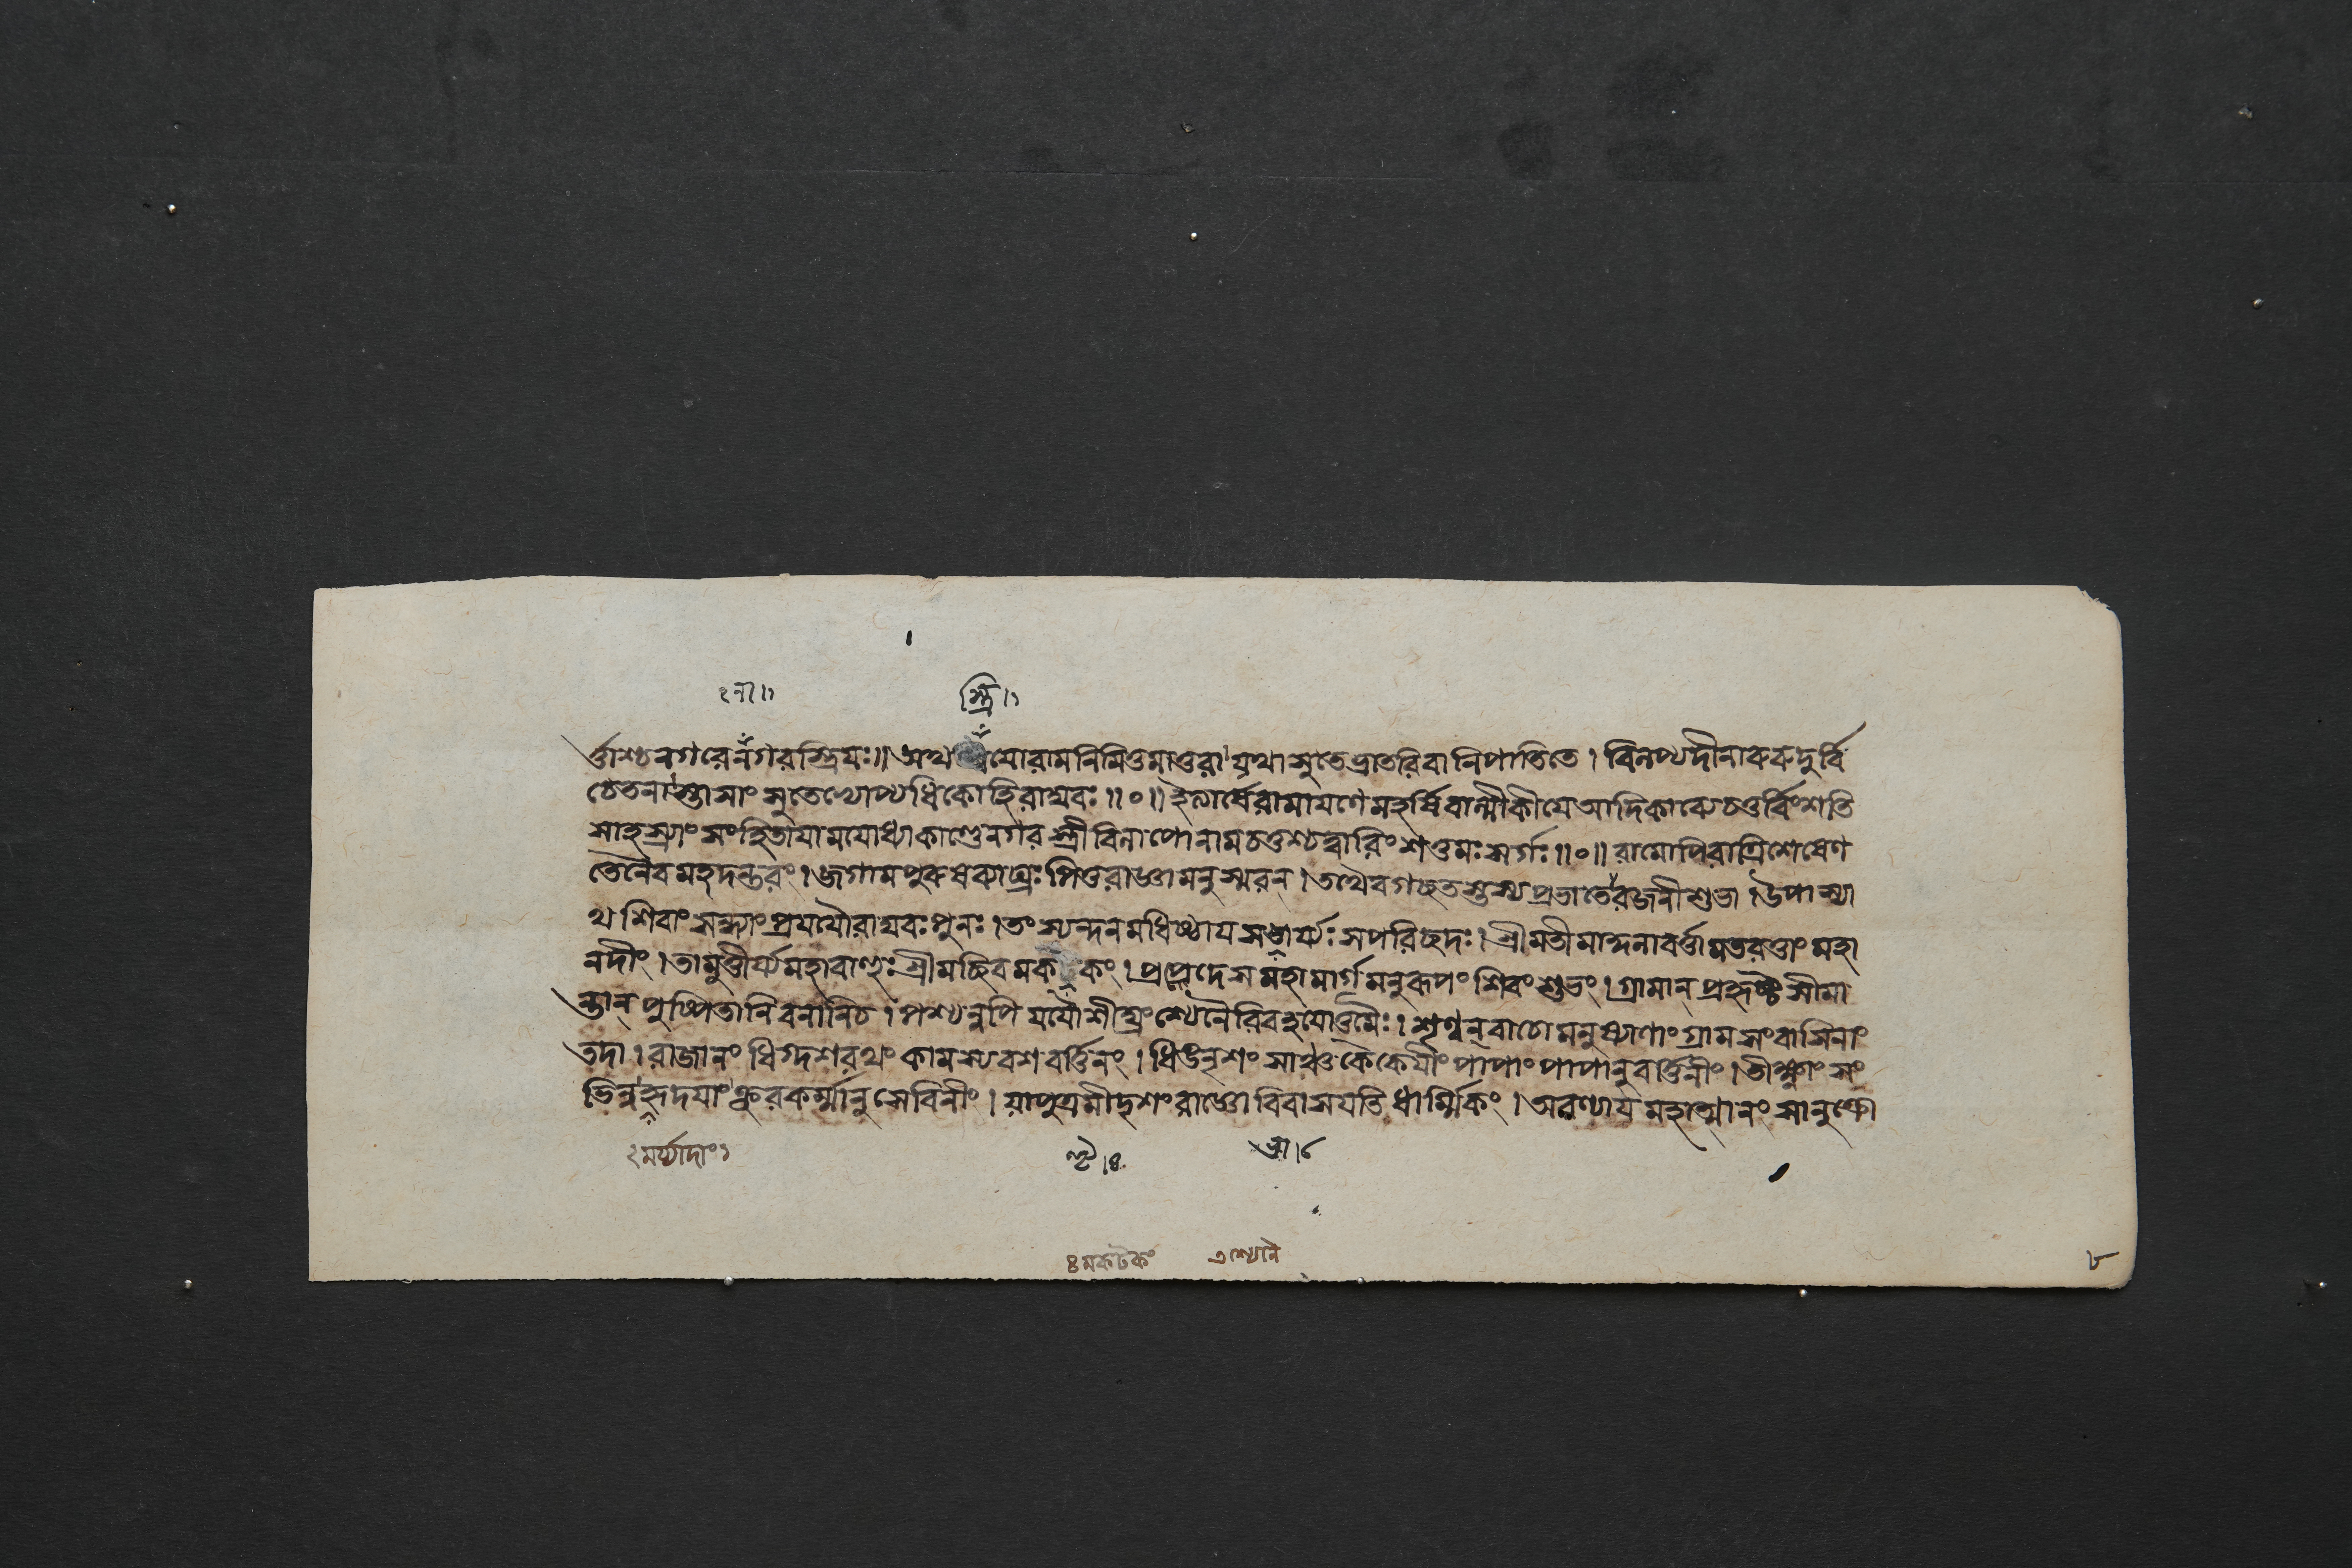 ২না॥১ স্ত্রি॥১
র্ত্তাশ্চনগরেনগরস্ত্রিয়ঃ॥ অথ যোরামনিমিত্তমাতুরা যথা সুতেভ্রাতরিবানিপাতিতে। বিলপ্যদীনারুরুদুর্বি
চেতনাস্তাসাং সুতেভ্যোপ্যধিকোহিরাঘবঃ॥০॥ ইত্যার্ষেরামায়ণে মহর্ষিবাল্মীকীয়ে আদিকাব্যেচতুর্বিংশতি
সাহস্র্যাং সংহিতায়ামযোধ্যাকাণ্ডেনগরস্ত্রীবিলাপোনামচতুশ্চত্বারিংশত্তমঃসর্গঃ॥০॥ রামোপিরাত্রিশেষেণ
তেনৈবমহদন্তরং। জগামপুরুষব্যাঘ্রঃ পিতুরাজ্ঞামনুস্মরন্। তথৈবগচ্ছতস্তস্যপ্রভাতেরজনীশুভা। উপাস্যা
থ শিবাংসন্ধ্যাংপ্রযযৌরাঘবঃপুনঃ। তং স্যন্দনমধিষ্ঠায়সভার্য্যঃ সপরিচ্ছদঃ। শ্রীমতীমান্দনাবর্ত্তামতরত্তাং মহা
নদীং। তামুত্তীর্য্যমহাবাহুঃশ্রীমচ্ছিবমক কং। প্রপেদে সমহামার্গমনুরূপং শিবং শুভং। গ্রামান্ প্রহৃষ্টসীমা
ন্তান্ পুষ্পিতানিবনানিচ। পশ্যন্নপি যযৌশীঘ্রংশ্যেনৈরিবহয়োত্তমৈঃ। শৃণ্বন্বাচোমনুষ্যাণাংগ্রামসংবাসিনাং
তদা। রাজানং ধিগ্দশরথং কামস্যবশবর্ত্তিনং। ধিঙনৃশংসাঞ্চকৈকেয়ীংপাপাং পাপানুবর্ত্তিনীং। তীক্ষ্ণাংসং
ভিন্নহৃদয়াংক্রূরকর্ম্মানুসেবিনীং। য়াপুত্রমীদৃশংরাজ্ঞোবিবাসয়তিধার্ম্মিকং। অরণ্যায়মহাত্মানং সানুক্রো
২মর্য্যাদাং১ ভা।৫
৪মকটকং শ্যেনৈ
৮